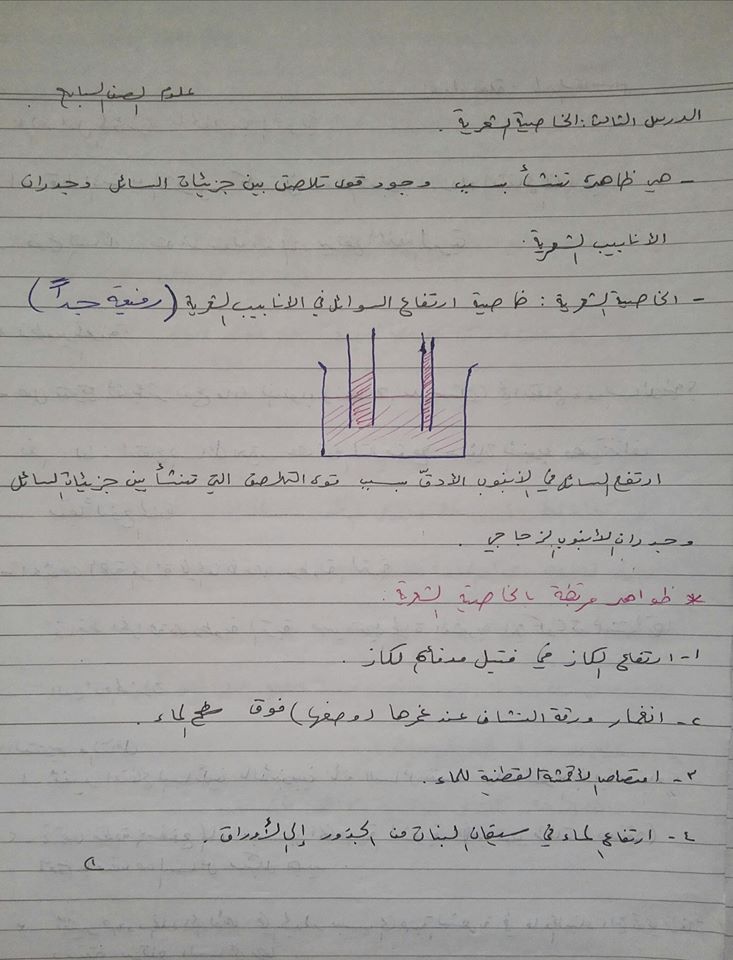 علوم الصف السابع
الدرس الثالث: الخاصية الشعرية.
- هي ظاهرة تنشأ بسبب وجود قوى تلاصق بين جزيئات السائل وجدران
الأنابيب الشعرية.
- الخاصية الشعرية: خاصية ارتفاع السوائل في الانابيب الشعرية (رفيعة جداً)
ارتفع السائل في الأنبوب الأدقّ بسبب قوى التلاصق التي تنشأ بين جزيئات السائل
وجدران الأنبوب الزجاجي.
* ظواهر مرتبطة بالخاصية الشعرية:
١- ارتفاع الكاز في فتيل مدفأة الكاز.
٢- انغمار ورقة النشاف عند غمرها (وضعها) فوق سطح الماء.
٣- امتصاص الأقمشة القطنية للماء.
٤- ارتفاع الماء في سيقان النبات من الجذور إلى الأوراق.